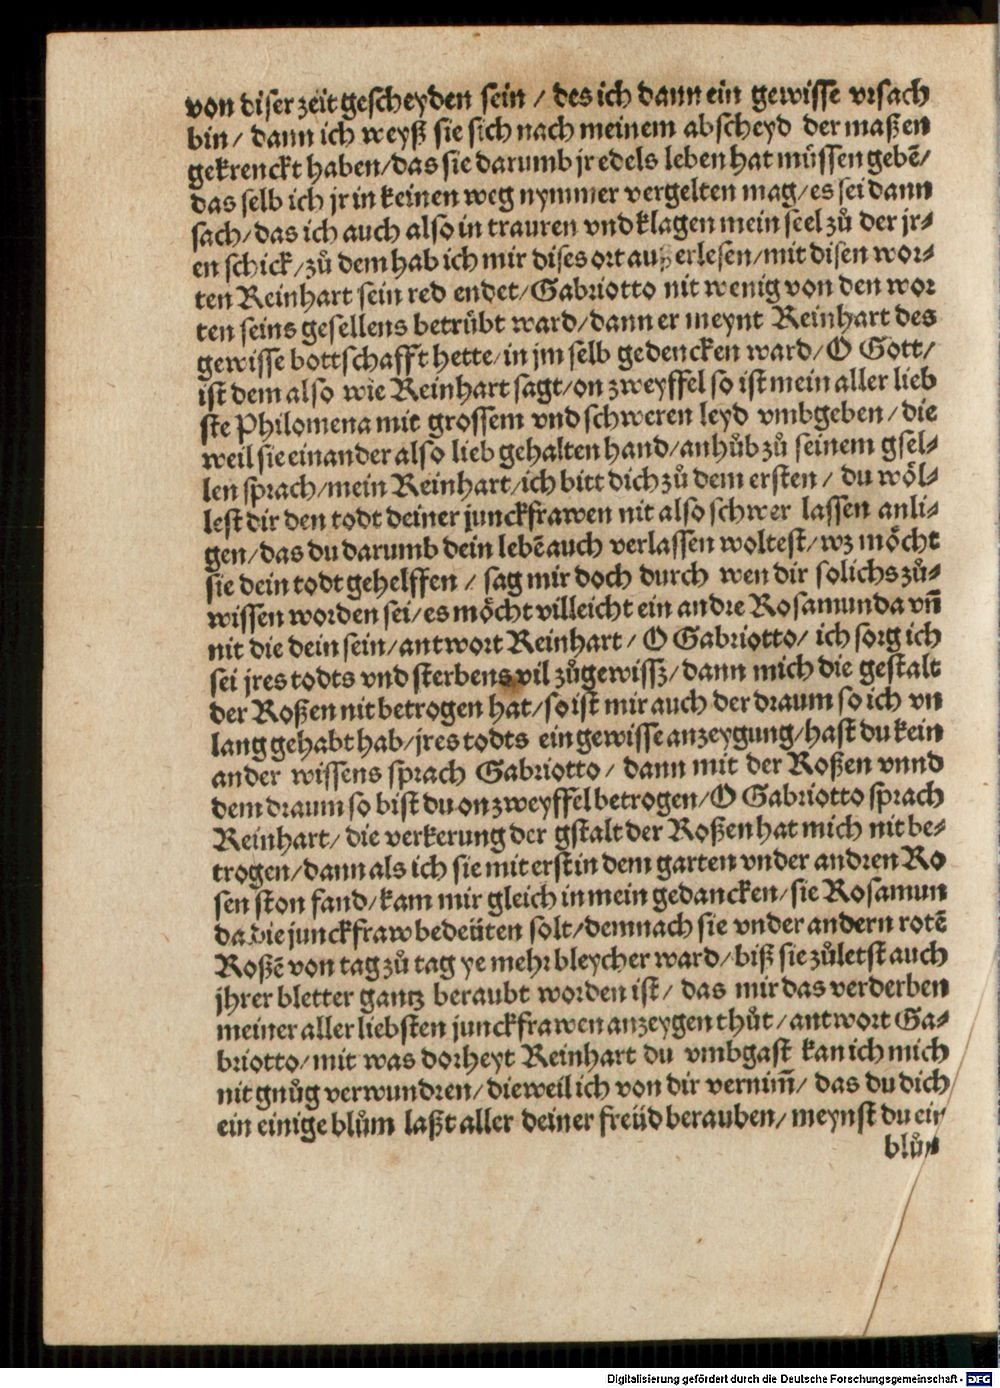 von diser zeit gescheyden sein / des ich dann ein gewisse vrsach
bin / dann ich weyß sie sich nach meinem abscheyd der maßen
gekrenckt haben / das sie darumb jr edels leben hat müssen gebē /
das selb ich jr in keinen weg nymmer vergelten mag / es sei dann
sach / das ich auch also in trauren vnd klagen mein seel zů der jr-
en schick / zů dem hab ich mir dises ort außerlesen / mit disen wor-
ten Reinhart sein red endet / Gabriotto nit wenig von den wor
ten seins gesellens betrübt ward / dann er meynt Reinhart des
gewisse bottschafft hette / in jm selb gedencken ward / O Gott /
ist dem also wie Reinhart sagt / on zweyffel so ist mein aller lieb
ste Philomena mit grossem vnd schweren leyd vmbgeben / die
weil sie einander also lieb gehalten hand / anhůb zů seinem gsel-
len sprach / mein Reinhart / ich bitt dich zů dem ersten / du wöl-
lest dir den todt deiner junckfrawen nit also schwer lassen anli-
gen / das du darumb dein lebē auch verlassen woltest / wz möcht
sie dein todt gehelffen / sag mir doch durch wen dir solichs zů-
wissen worden sei / es möcht villeicht ein andre Rosamunda vñ
nit die dein sein / antwort Reinhart / O Gabriotto / ich sorg ich
sei jres todts vnd sterbens vil zůgewissz / dann mich die gestalt
der Roßen nit betrogen hat / so ist mir auch der draum so ich vn
lang gehabt hab / jres todts ein gewisse anzeygung / hast du kein
ander wissens sprach Gabriotto / dann mit der Roßen vnnd
dem draum so bist du on zweyffel betrogen / O Gabriotto sprach
Reinhart / die verkerung der gstalt der Roßen hat mich nit be-
trogen / dann als ich sie mit erst in dem garten vnder andren Ro
sen ston fand / kam mir gleich in mein gedancken / sie Rosamun
da die junckfraw bedeüten solt / demnach sie vnder andern rotē
Roßē von tag zů tag ye mehr bleycher ward / biß sie zůletst auch
jhrer bletter gantz beraubt worden ist / das mir das verderben
meiner aller liebsten junckfrawen anzeygen thůt / antwort Ga-
briotto / mit was dorheyt Reinhart du vmbgast kan ich mich
nit gnůg verwundren / dieweil ich von dir vernim̃ / das du dich
ein einige blům laßt aller deiner freüd berauben / meynst du ein
blům
Digitalisierung gefördert durch die Deutsche Forschungsgemeinschaft - DFG